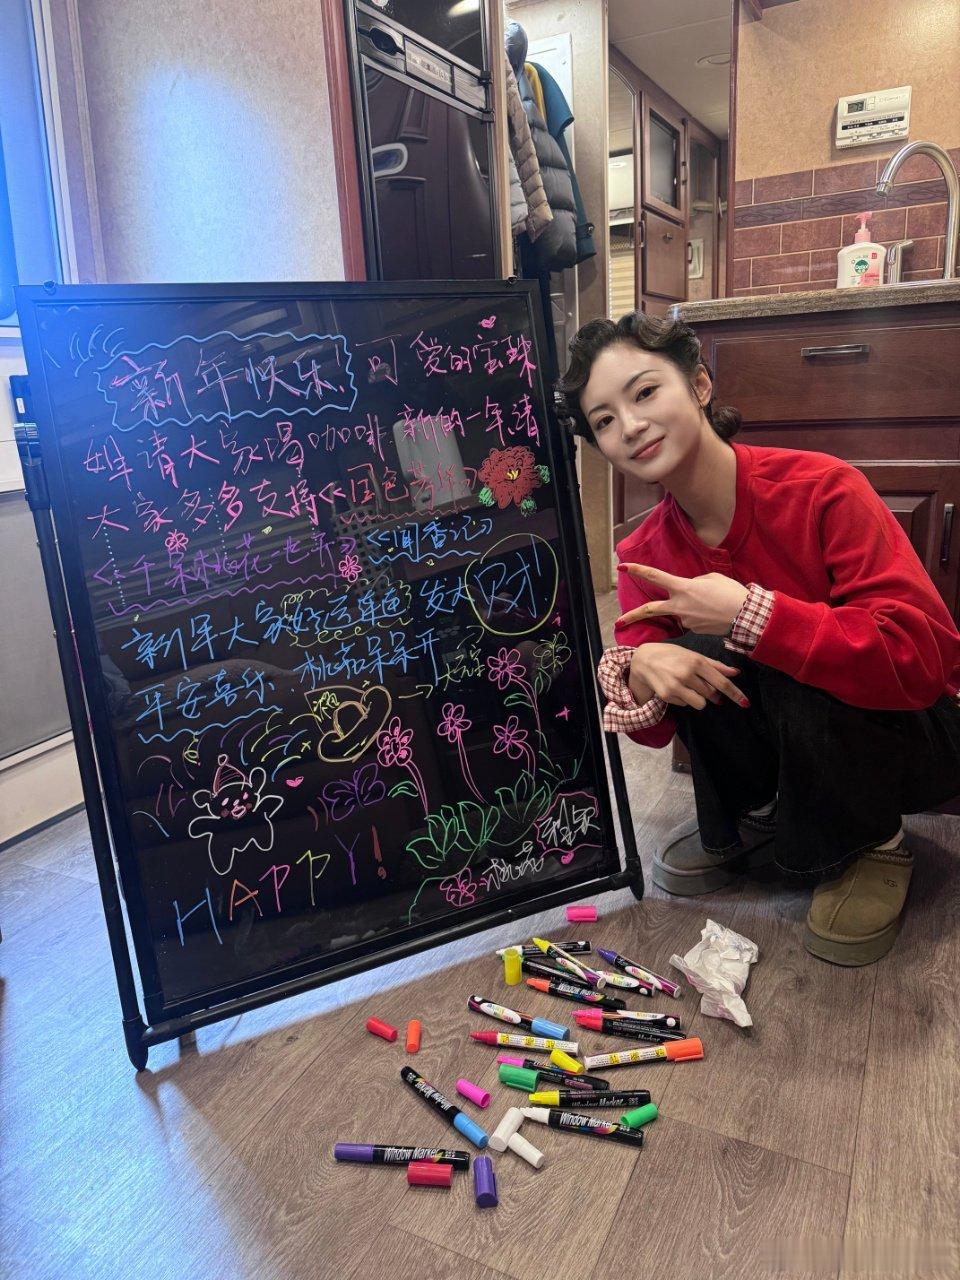 新年快乐,可爱的宝珠
姐请大家喝咖啡.新的一年请
大家多多支持<<国色芳华>>
<<千朵桃花一世开>><<闻香记>>
新年大家好运连连 发大财!
平安喜乐.桃花朵朵开
HAPPY!
桃花
Window Marker
Window Marker
Window Marker
Window Marker